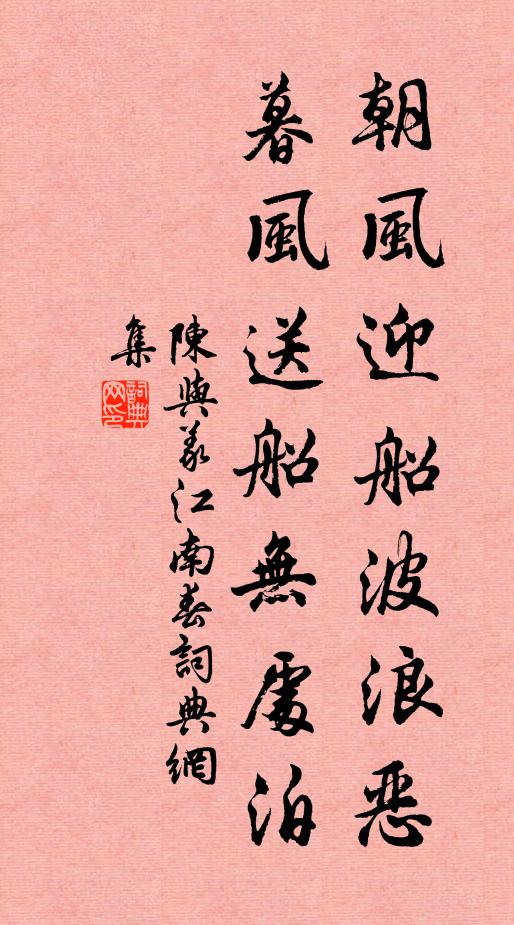 朝風迎船波浪恶
暮風送船無處泊
陳與義江南春詞典網
集
詞典
网印